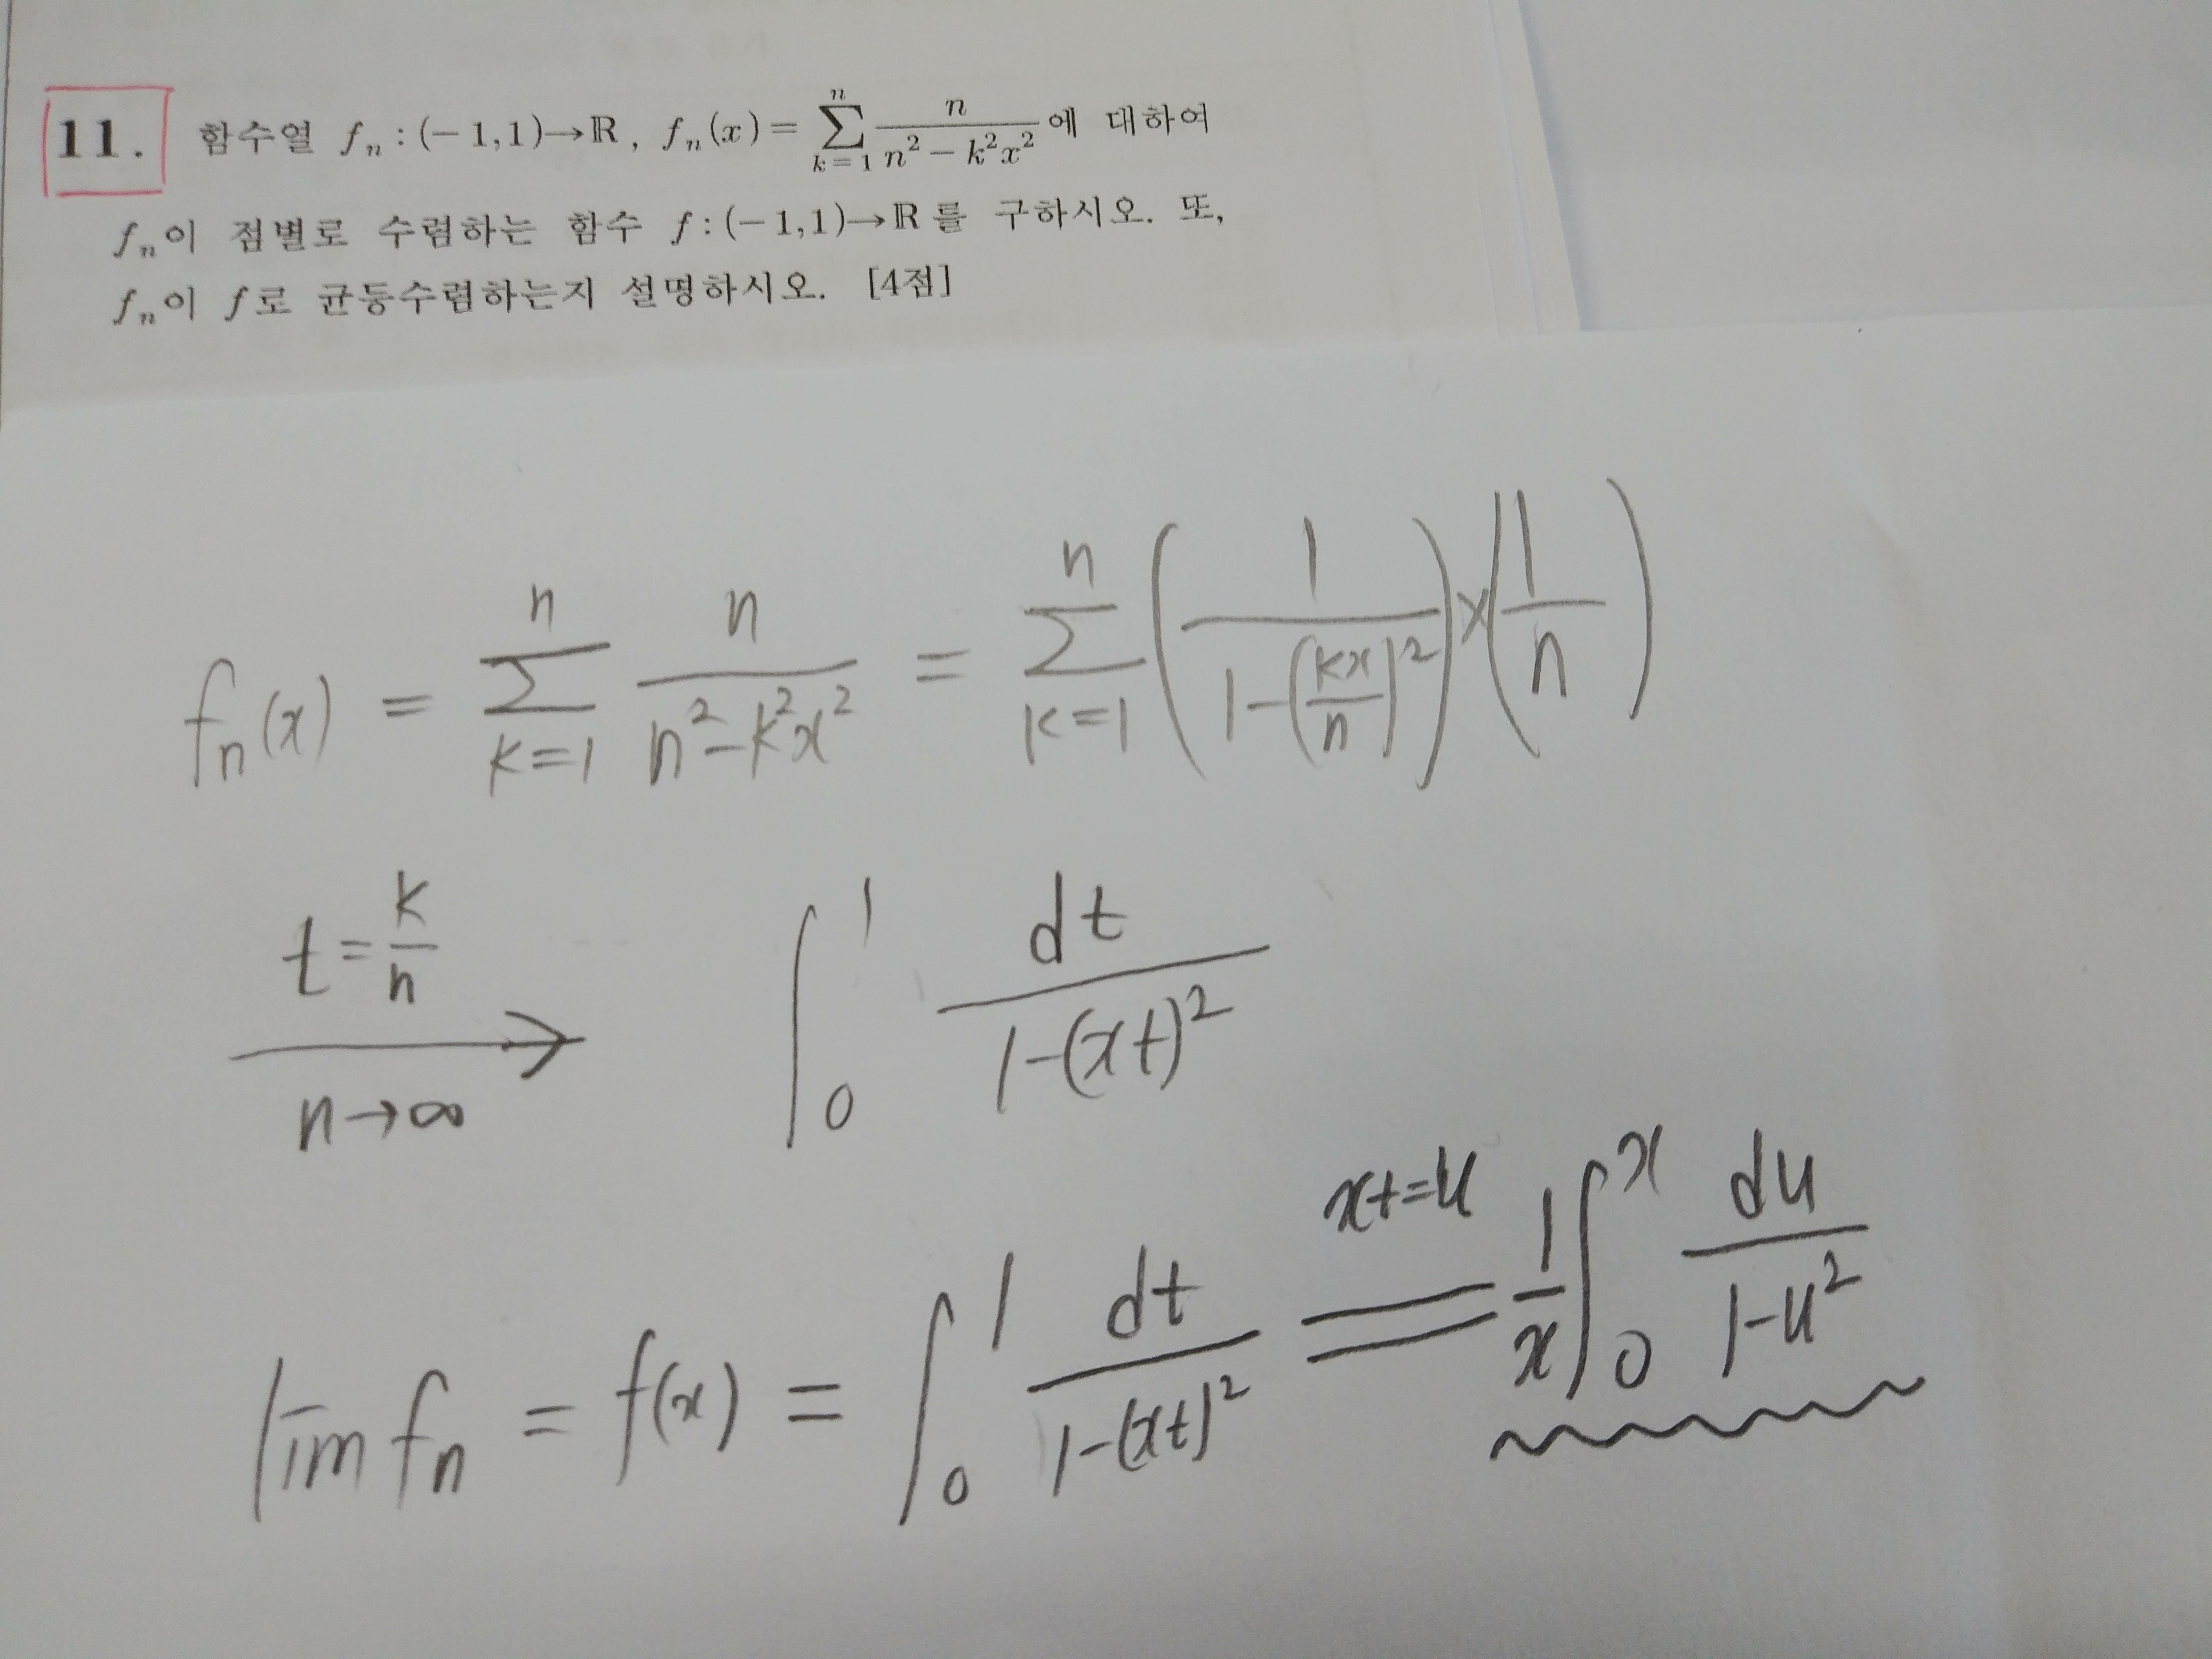 11. 함수열 fₙ : (−1,1)→ℝ, fₙ(x) = ∑_{k=1}^{n} n/(n²−k²x²) 에 대하여
fₙ이 점별로 수렴하는 함수 f : (−1,1)→ℝ를 구하시오. 또,
fₙ이 f로 균등수렴하는지 설명하시오. [4점]
fₙ(x) = ∑_{k=1}^{n} n/(n²−k²x²) = ∑_{k=1}^{n} (1/(1−(kx/n)²)) × (1/n)
t=k/n n→∞ → ∫₀¹ dt/(1−(xt)²)
lim fₙ = f(x) = ∫₀¹ dt/(1−(xt)²) xt=u = 1/x ∫₀ˣ du/(1−u²)